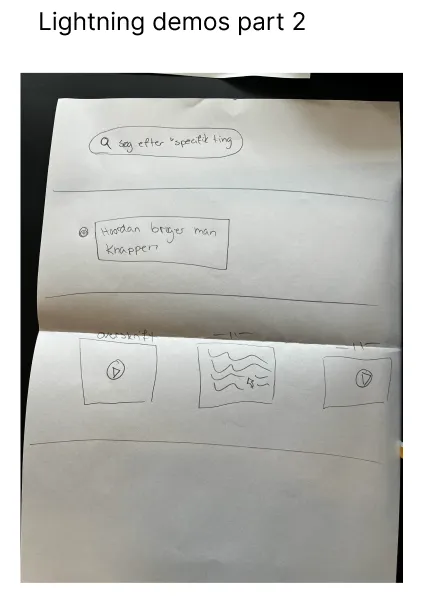 Lightning demos part 2
Søg efter "specifik ting
Hvordan bruger man
Knappen
overskrift
—11—
—11—